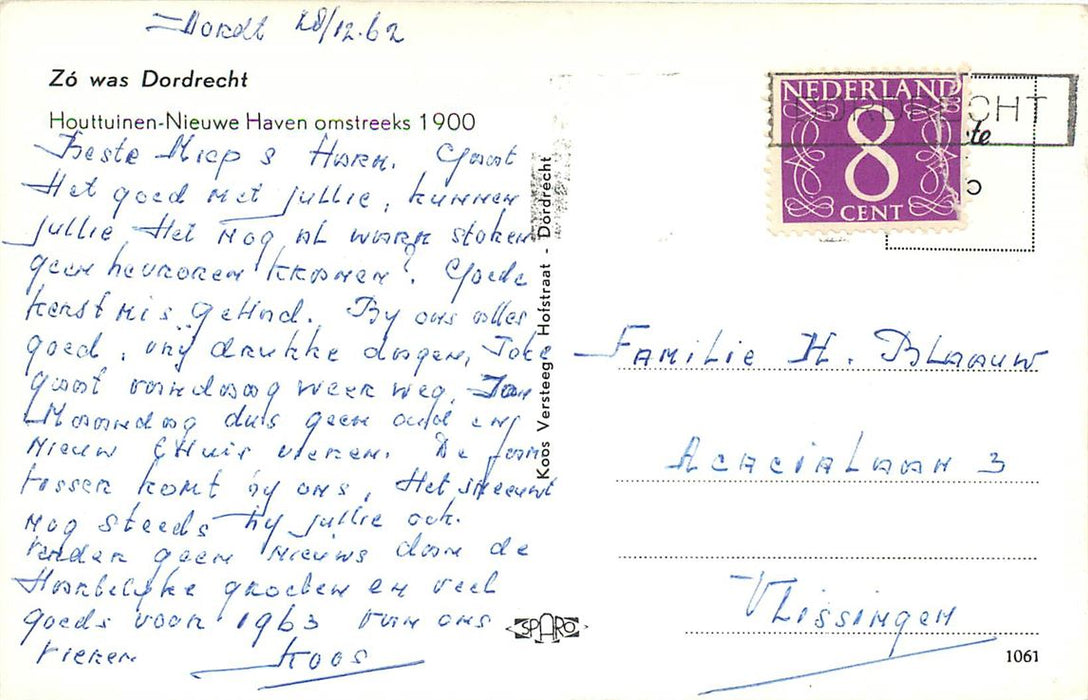 Dordt 28/12.62
Zó was Dordrecht
Houttuinen-Nieuwe Haven omstreeks 1900
Beste Miep & Harm. Gaat
Het goed met jullie, kunnen
jullie Het nog al warm stoken
geen bevroren kranen? Goede
kerstmis gehad. By ons alles
goed, vry drukke dagen, Joke
gaat vandaag weer weg, Jan
Maandag dus geen oud en
Nieuw thuis vieren. De fam
komt by ons, Het sneeuwt
nog steeds by jullie ook.
Verder geen nieuws dan de
Hartelyke groeten en veel
goeds voor 1963 van ons
vieren Koos
Koos Versteeg - Hofstraat - Dordrecht
SPARO
NEDERLAND
8
CENT
DORDRECHT
Familie H. Blaauw
Acacialaan 3
Vlissingen
1061